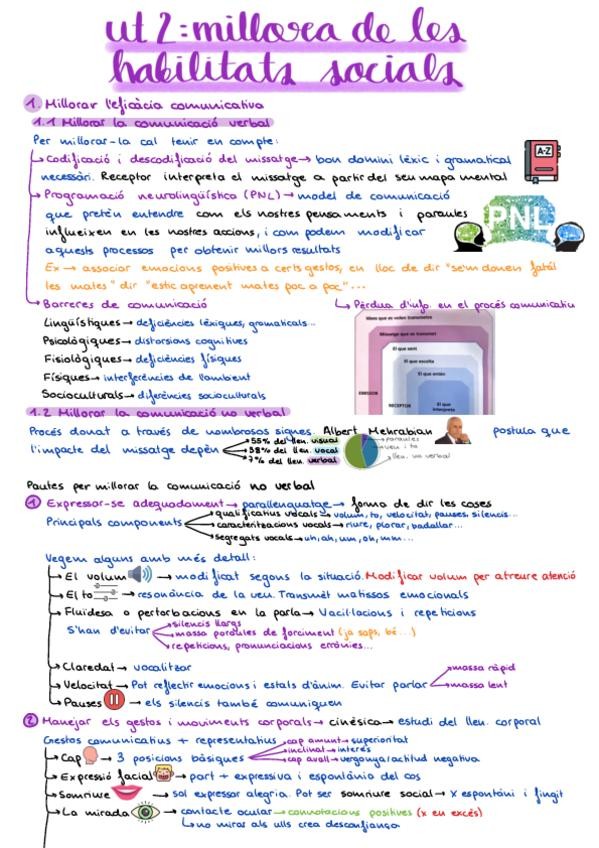 ut 2: millora de les
habilitats socials
1. Millorar l'eficàcia comunicativa
1.1 Millorar la comunicació verbal
Per millorar-la cal tenir en compte:
Codificació i descodificació del missatge → bon domini lèxic i gramatical
necessàri. Receptor interpreta el missatge a partir del seu mapa mental
A-Z
Programació neurolingüística (PNL) → model de comunicació
que pretén entendre com els nostres pensaments i paraules
influeixen en les nostres accions, i com podem modificar
aquests processos per obtenir millors resultats
PNL
Ex → associar emocions positives a certs gestos, en lloc de dir "se'm donen fatal
les mates" dir "estic aprenent mates poc a poc"...
Barreres de comunicació
↳ Pèrdua d'info. en el procés comunicatiu
Lingüístiques → deficiències lèxiques, gramaticals...
Psicològiques → distorsions cognitives
Fisiològiques → deficiències físiques
Físiques → interferències de l'ambient
Socioculturals → diferències socioculturals
Idees que es volen transmetre
Missatge que es transmet
El que sent
El que escolta
El que entén
El que interpreta
EMISSOR
RECEPTOR
1.2 Millorar la comunicació no verbal
Procés donat a través de nombrosos signes. Albert Mehrabian postula que
l'impacte del missatge depèn
55% del llen. visual
38% del llen. vocal
7% del llen. verbal
paraules
veu i to
llen. no verbal
Pautes per millorar la comunicació no verbal
1 Expressar-se adequadament → parallenguatge → forma de dir les coses
Principals components
qualificatius vocals → volum, to, velocitat, pauses, silencis...
caracteritzacions vocals → riure, plorar, badallar...
segregats vocals → uh, ah, um, oh, mm...
Vegem alguns amb més detall:
El volum → modificat segons la situació. Modificar volum per atreure atenció
El to → resonància de la veu. Transmèt matissos emocionals
Fluïdesa o pertorbacions en la parla → Vacil·lacions i repeticions
S'han d'evitar
silencis llargs
massa paraules de farciment (ja saps, bé...)
repeticions, pronunciacions errònies...
Claredat → vocalitzar
Velocitat → Pot reflectir emocions i estats d'ànim. Evitar parlar
massa ràpid
massa lent
Pauses → els silencis també comuniquen
2 Manejar els gestos i moviments corporals → cinèsica → estudi del llen. corporal
Gestos comunicatius + representatius
Cap → 3 posicions bàsiques
cap amunt → superioritat
inclinat → interès
cap avall → vergonya/actitud negativa
Expressió facial → part + expressiva i espontània del cos
Somriure → sol expressar alegria. Pot ser somriure social → x espontàni i fingit
La mirada → contacte ocular → connotacions positives (x en excés)
↳ no mirar als ulls crea desconfiança